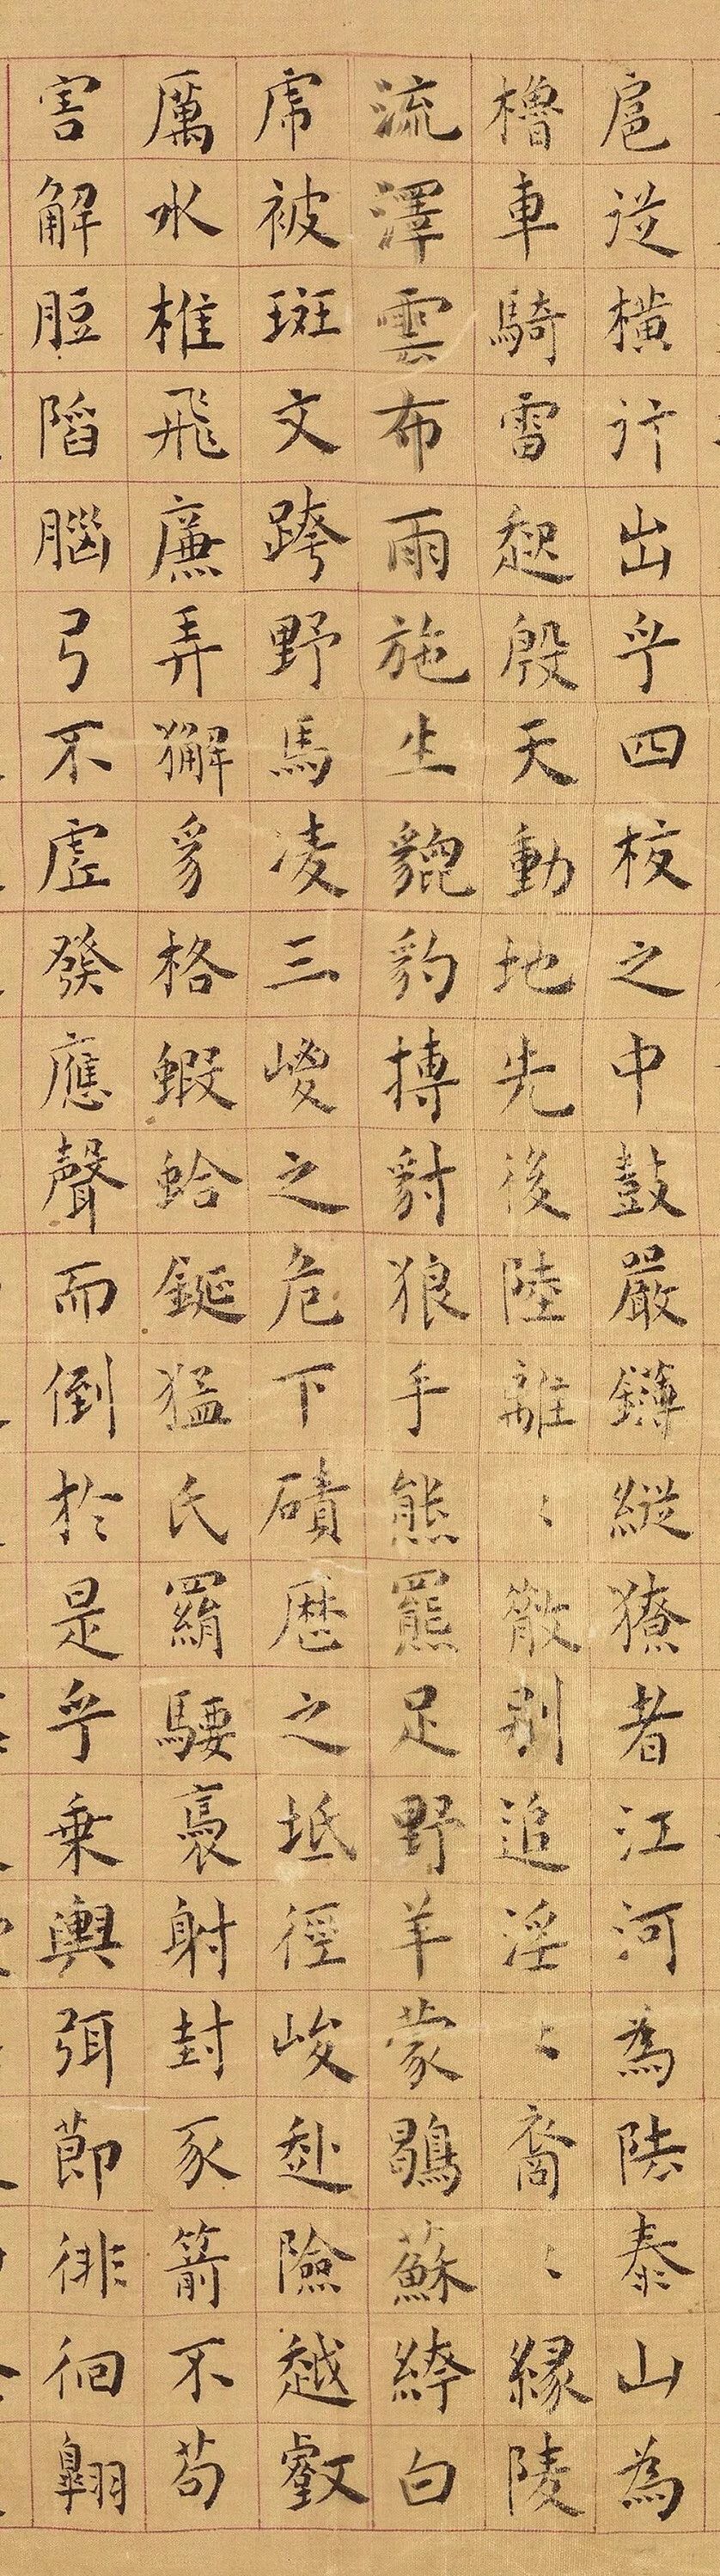 扈從橫行出乎四校之中鼓嚴鏄縱獠者江河為阹泰山為
櫓車騎雷起殷天動地先後陸離〻散別追淫〻裔〻緣陵
流澤雲布雨施生貔豹搏豺狼手熊羆足野羊蒙鶡蘇絝白
虎被斑文跨野馬凌三嵕之危下磧歷之坻徑峻赴險越壑
厲水椎飛廉弄獬豸格蝦蛤鋋猛氏羂騕褭射封豕箭不苟
害解脰陷腦弓不虛發應聲而倒於是乎乘輿弭節徘徊翱